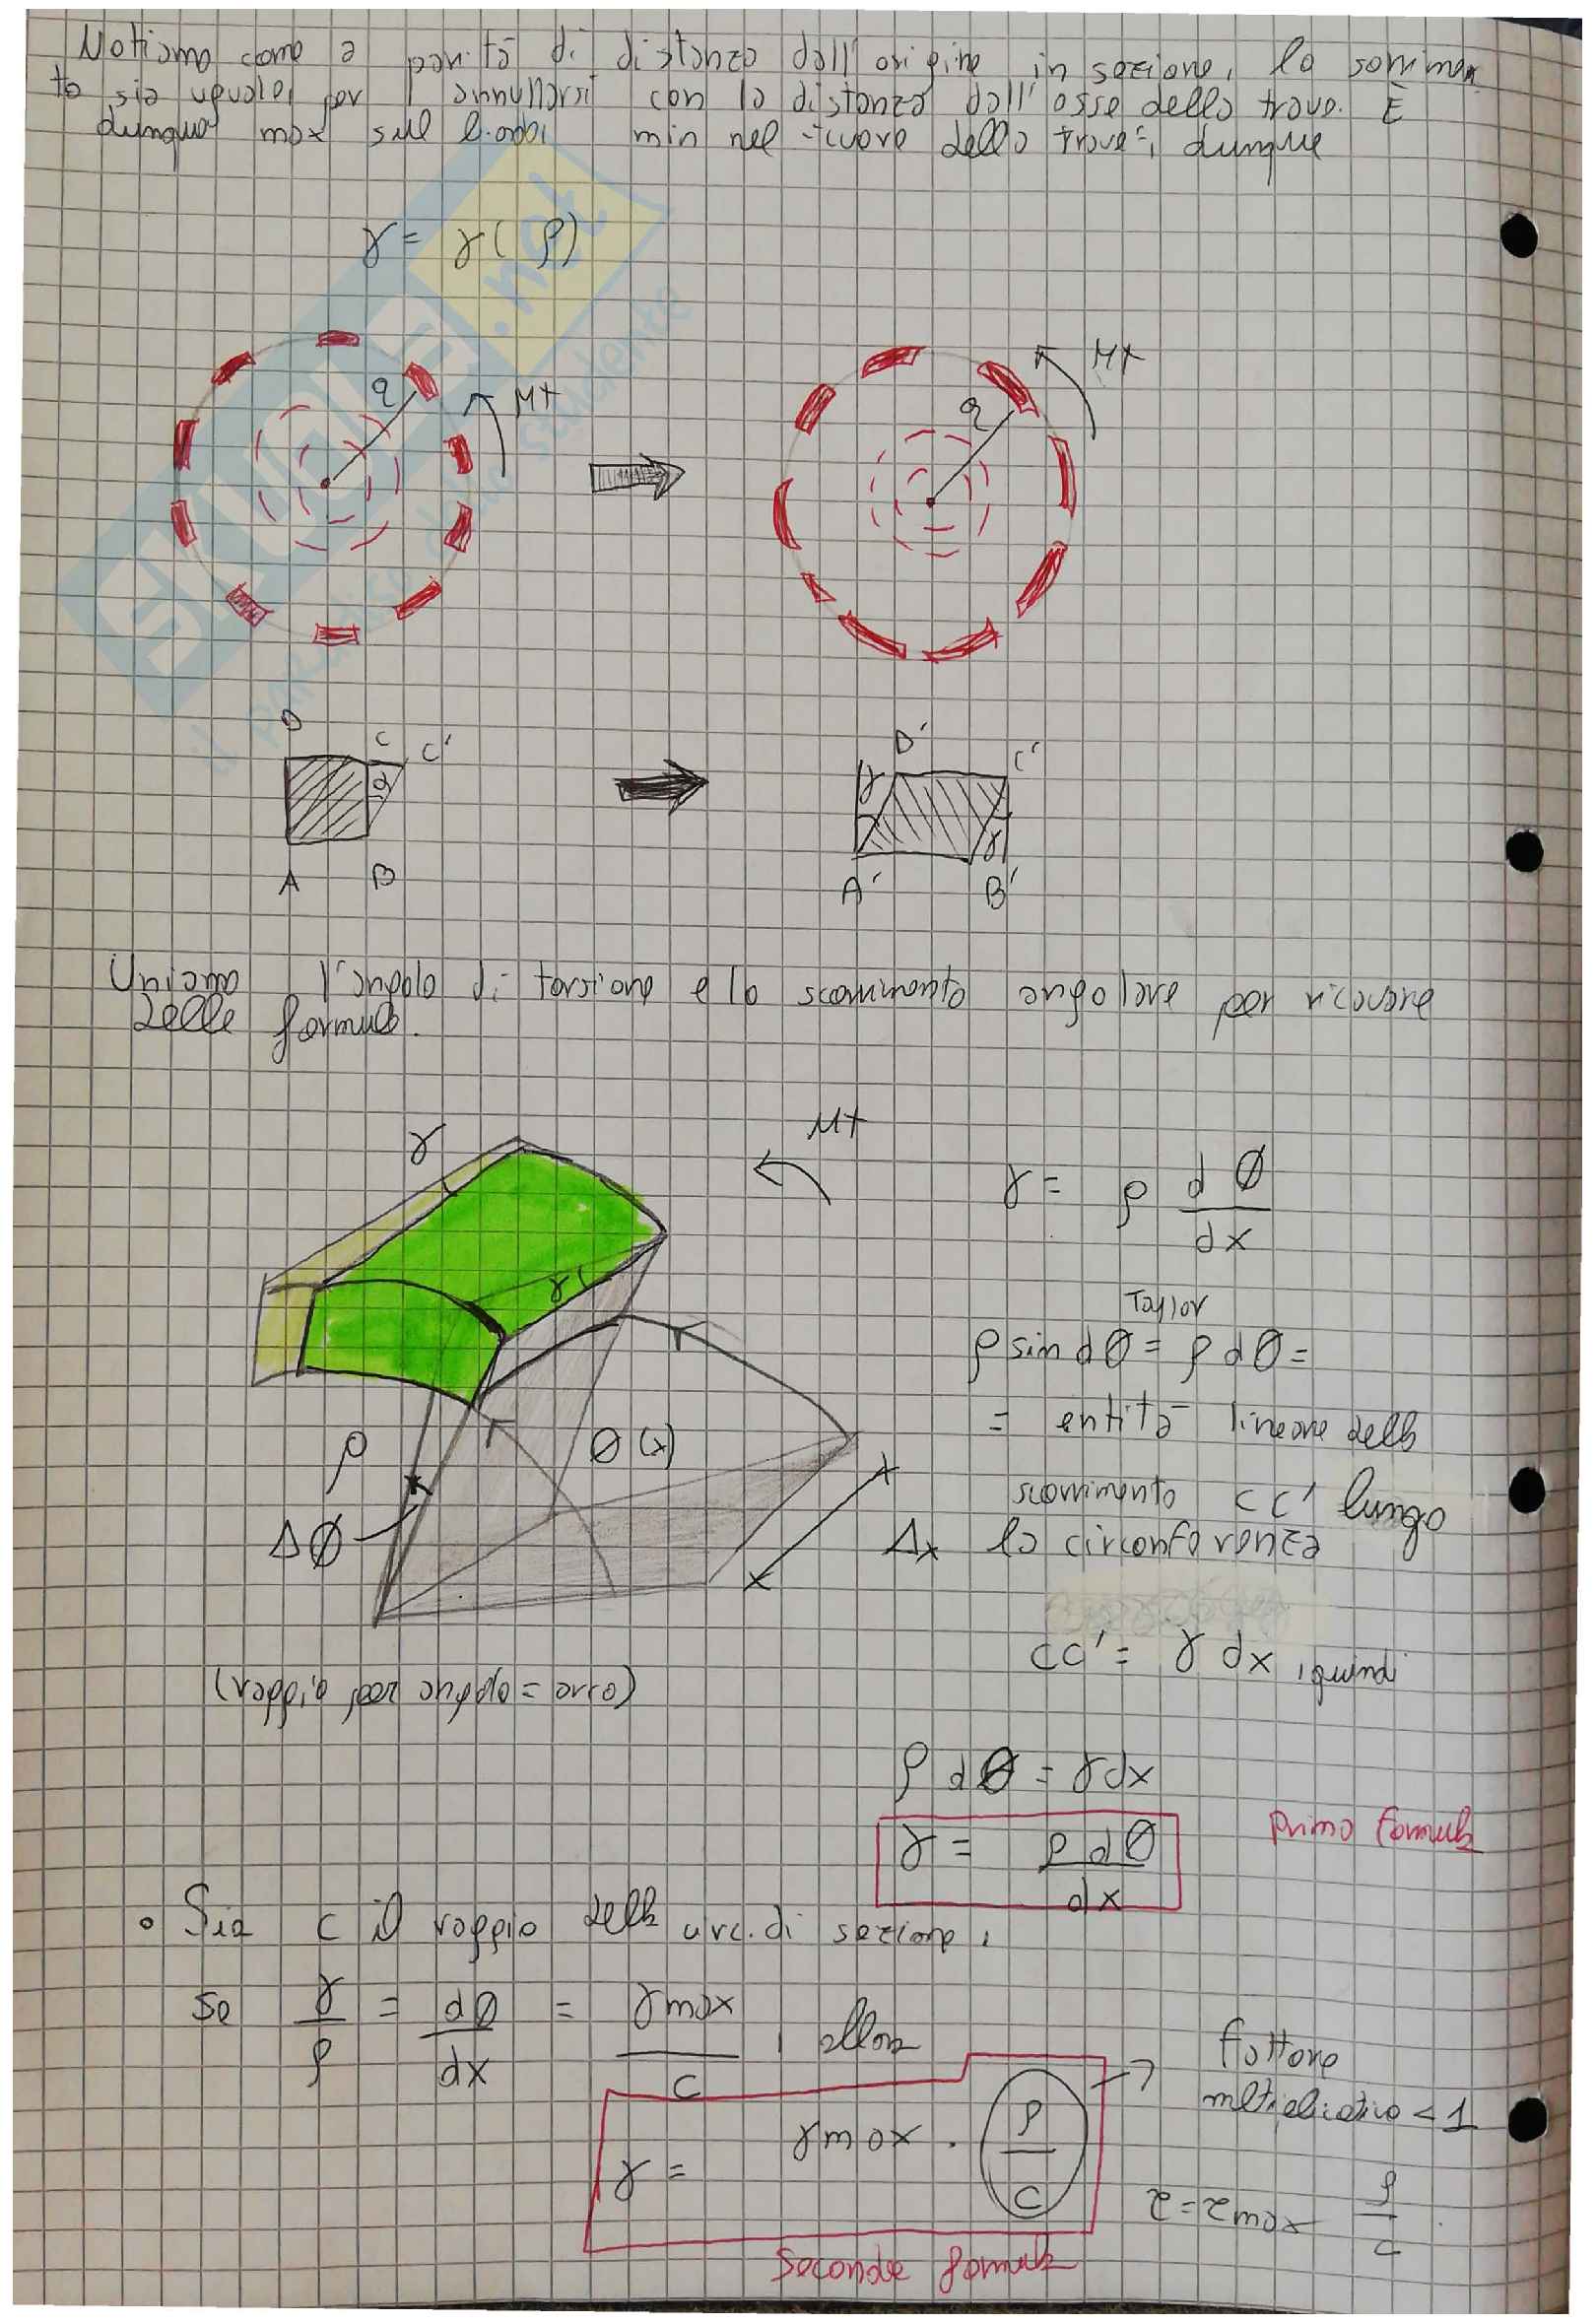 Notiamo come a parità di distanza dall'origine in sezione, lo scorrimen
to sia uguale, per annullarsi con la distanza dall'asse della trave. È
dunque max sul bordo, min nel "cuore della trave", dunque
γ = γ(ρ)
Mt
Mt
D
C C'
D' C'
γ
γ
A B
A' B'
Uniamo l'angolo di torsione e lo scorrimento angolare per ricavare
delle formule.
γ
Mt
γ = ρ dØ
dx
γ
Taylor
ρ sin dØ = ρ dØ =
= entità lineare dello
ρ
Ø(x)
scorrimento CC' lungo
ΔØ
Δx
la circonferenza
CC' = γ dx, quindi
(raggio per angolo = arco)
ρ dØ = γ dx
γ = ρ dØ
dx
Prima formula
• Sia c il raggio della circ. di sezione,
Se γ = dØ = γmax, allora
ρ dx c
Fattore
moltiplicativo < 1
γ = γmax · ρ
c
τ = τmax ρ
c
Seconda formula
SKUOLA.net
il paradiso dello studente